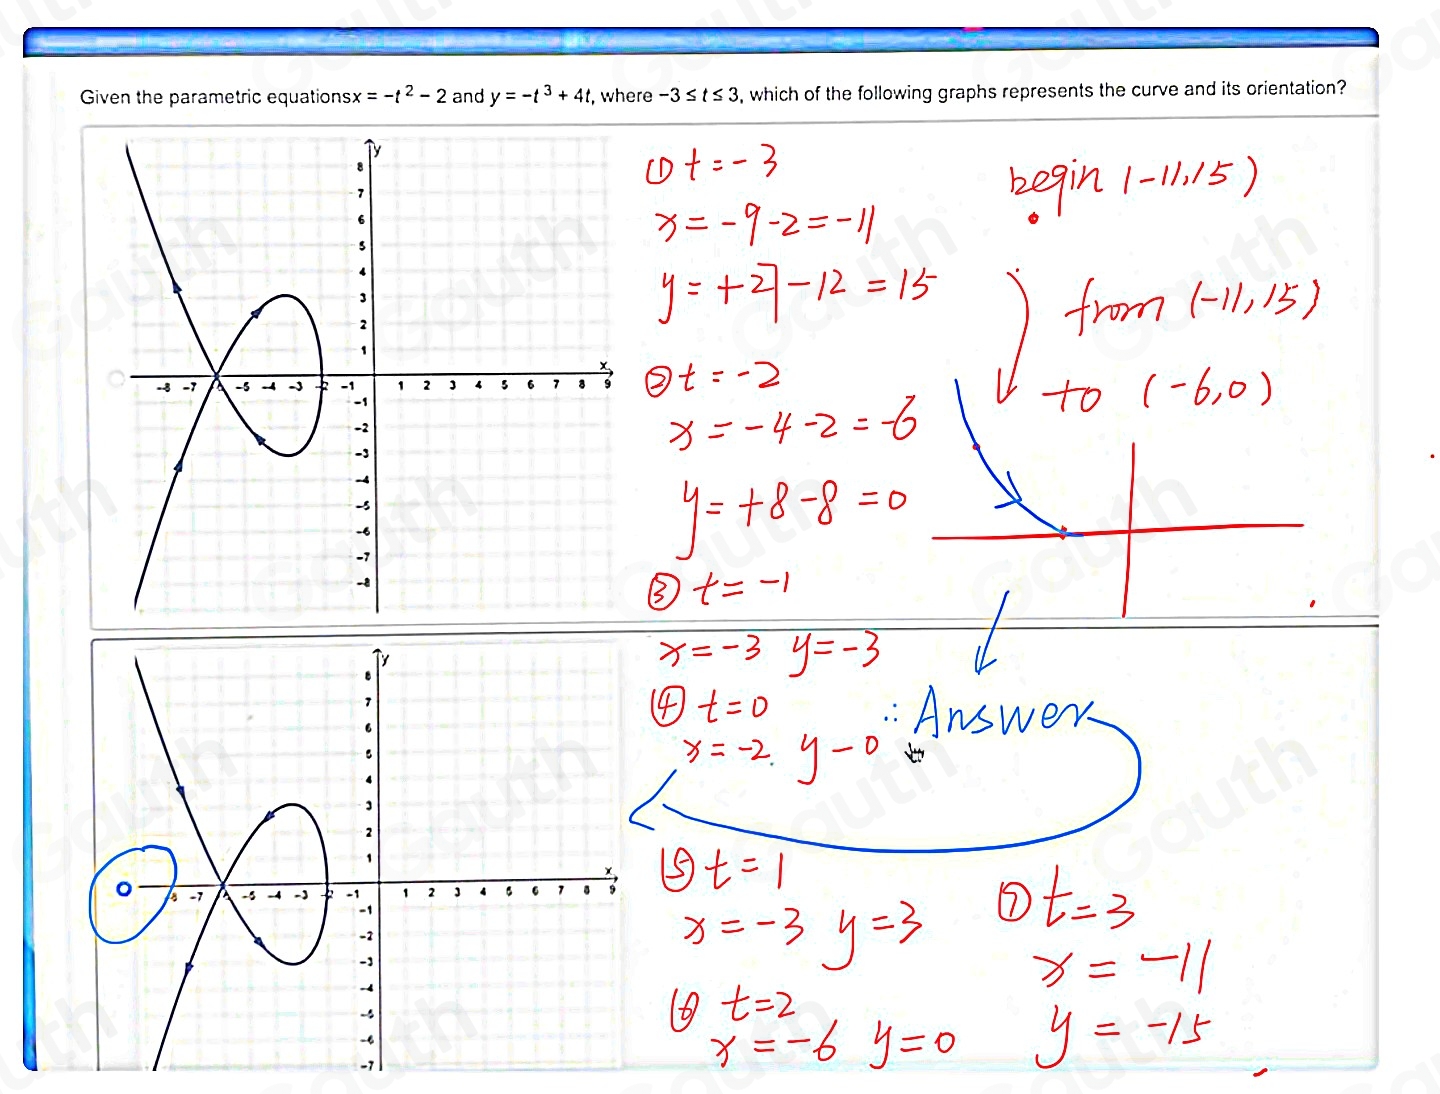 Given the parametric equationsx = −t² − 2 and y = −t³ + 4t, where −3 ≤ t ≤ 3, which of the following graphs represents the curve and its orientation?
y
8
7
6
5
4
3
2
1
x
-8 -7 -6 -5 -4 -3 -2 -1 1 2 3 4 5 6 7 8 9
-1
-2
-3
-4
-5
-6
-7
-8
① t = -3
x = -9-2 = -11
y = +27-12 = 15
② t = -2
x = -4-2 = -6
y = +8-8 = 0
③ t = -1
x = -3 y = -3
④ t = 0
x = -2. y - 0
⑤ t = 1
x = -3 y = 3
⑥ t = 2
x = -6 y = 0
⑦ t = 3
x = -11
y = -15
begin (-11,15)
from (-11,15)
to (-6,0)
∴ Answer
y
8
7
6
5
4
3
2
1
x
-8 -7 -6 -5 -4 -3 -2 -1 1 2 3 4 5 6 7 8 9
-1
-2
-3
-4
-5
-6
-7
Gauth